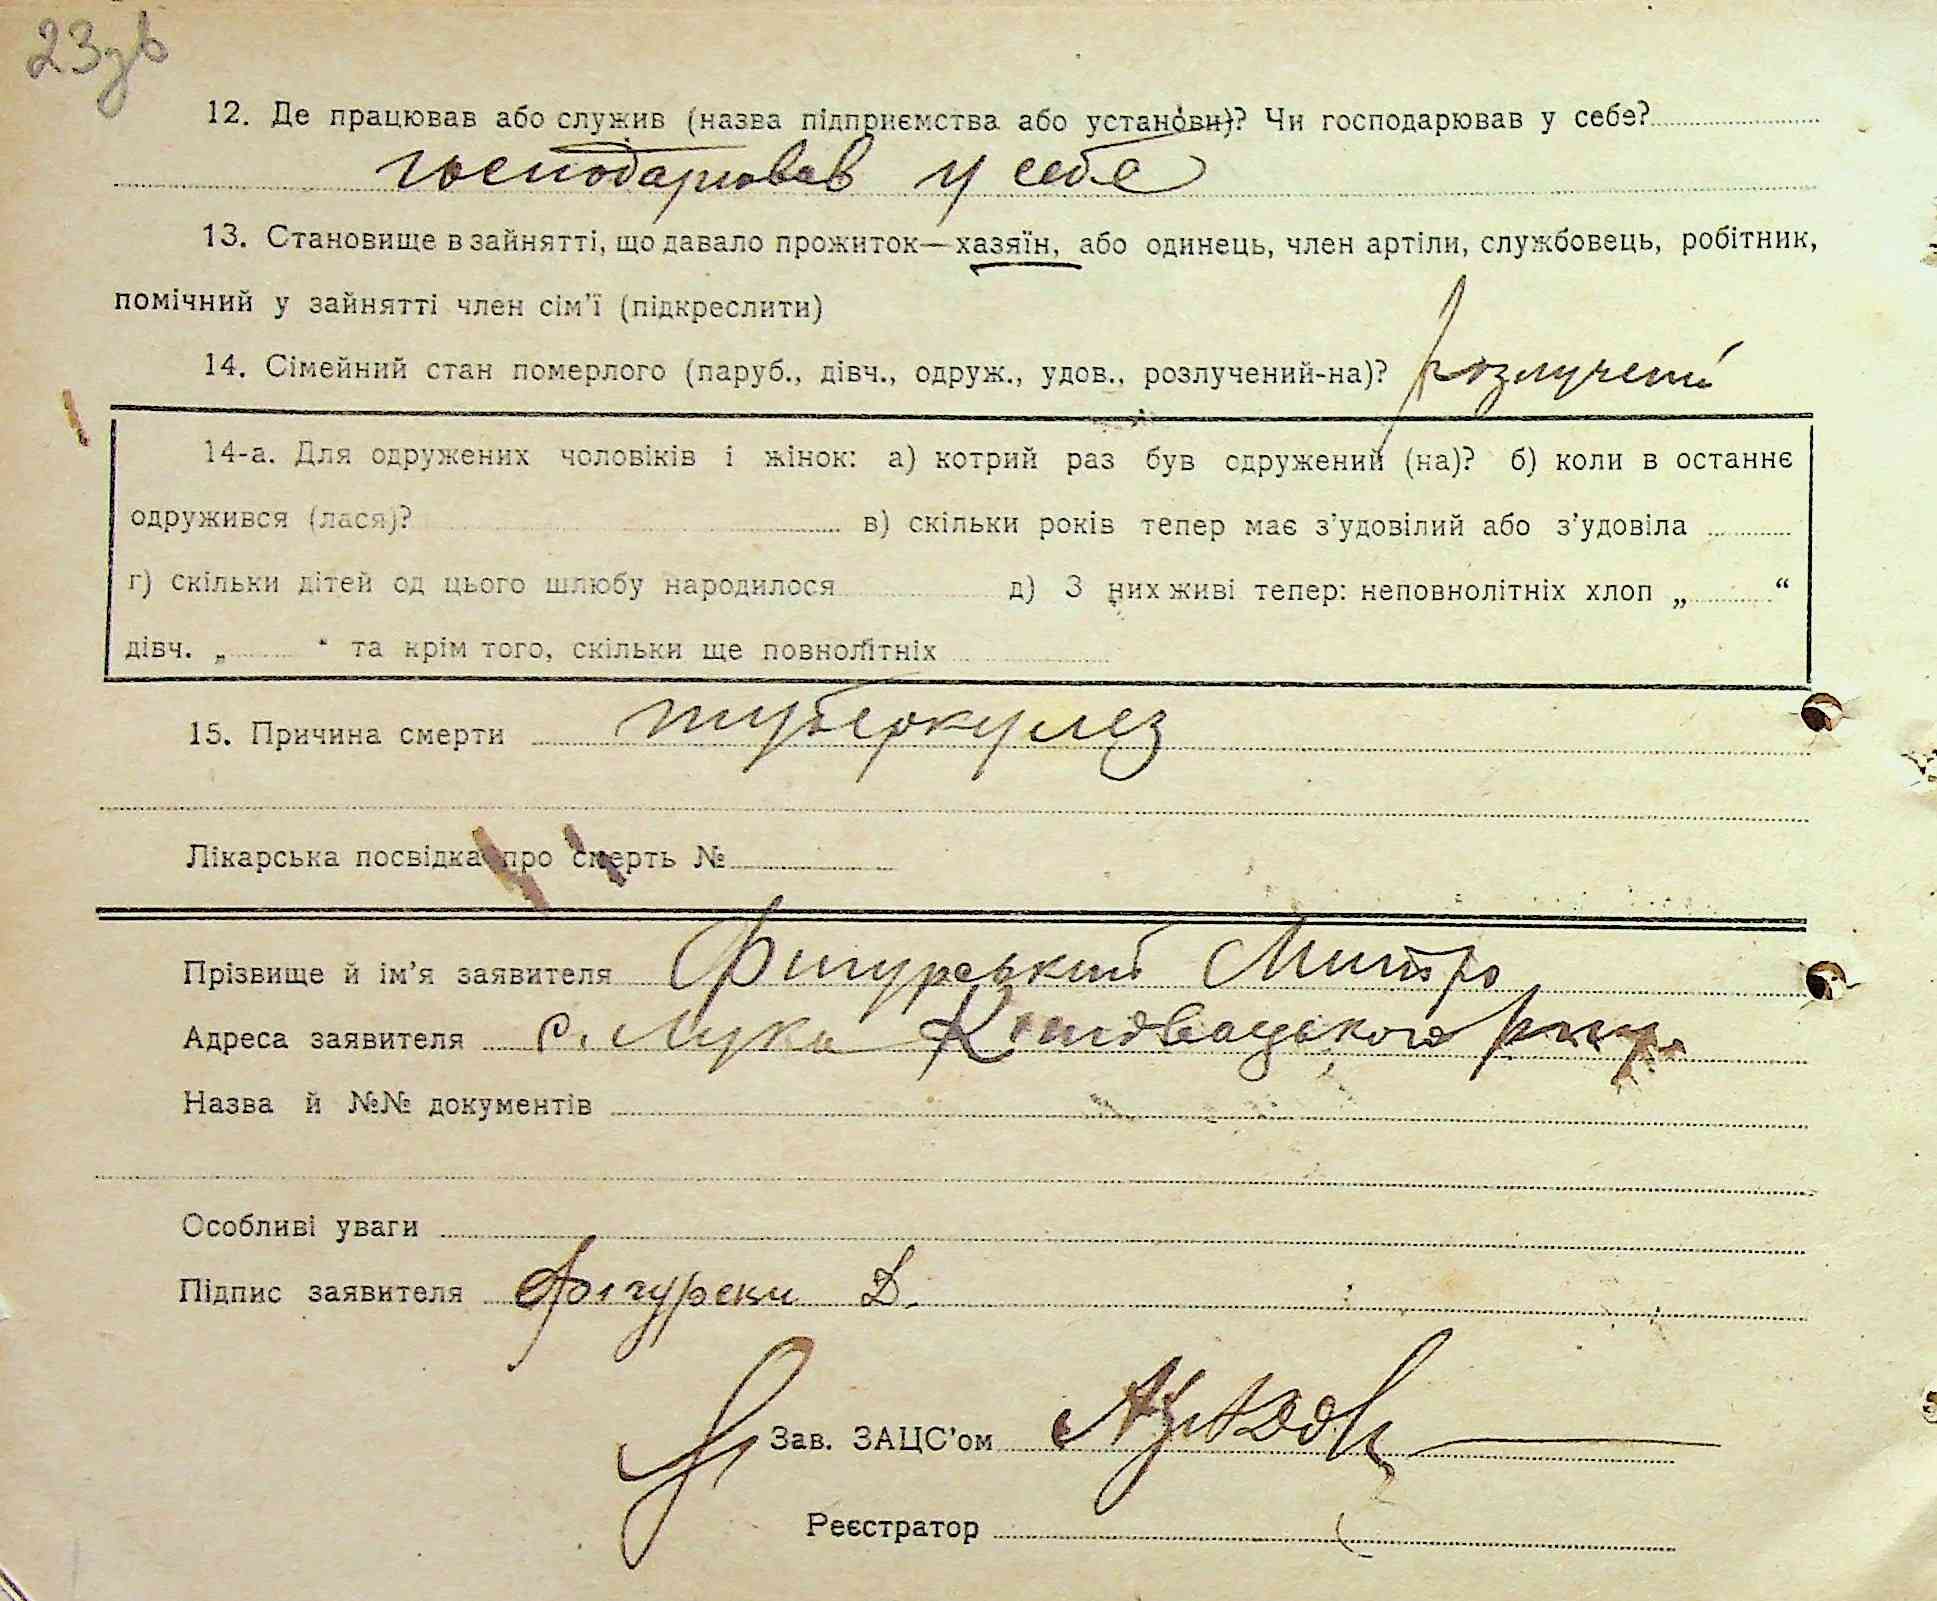 23зв
12. Де працював або служив (назва підприємства або установи)? Чи господарював у себе?
господарював у себе
13. Становище в зайнятті, що давало прожиток—хазяїн, або одинець, член артіли, службовець, робітник,
помічний у зайнятті член сім'ї (підкреслити)
14. Сімейний стан померлого (паруб., дівч., одруж., удов., розлучений-на)? розлучений
14-а. Для одружених чоловіків і жінок: а) котрий раз був одружений (на)? б) коли в останнє
одружився (лася)? в) скільки років тепер має з'удовілий або з'удовіла
г) скільки дітей од цього шлюбу народилося д) З них живі тепер: неповнолітніх хлоп „ “
дівч. „ “ та крім того, скільки ще повнолітніх
15. Причина смерти туберкулез
Лікарська посвідка про смерть №
Прізвище й ім'я заявителя Фигурський Митро
Адреса заявителя с. Лука
Назва й №№ документів
Особливі уваги
Підпис заявителя Фігурски Д.
Зав. ЗАЦС'ом
Реєстратор